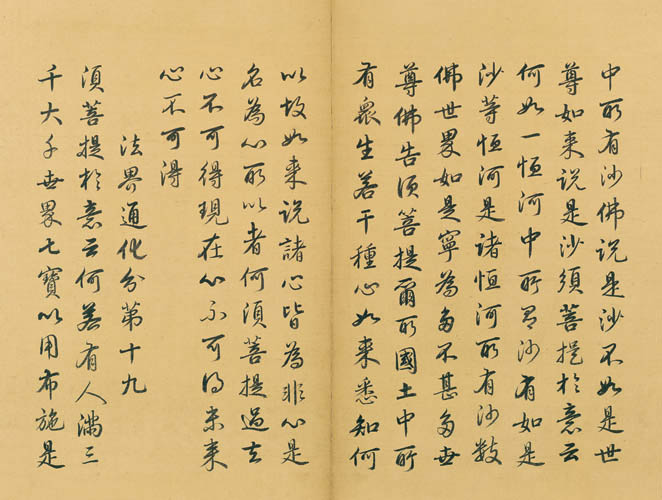 中所有沙佛說是沙不如是世
尊如来說是沙須菩提於意云
何如一恒河中所有沙有如是
沙等恒河是諸恒河所有沙數
佛世界如是寧為多不甚多世
尊佛告須菩提爾所國土中所
有眾生若干種心如来悉知何
以故如来說諸心皆為非心是
名為心所以者何須菩提過去
心不可得現在心不可得未来
心不可得
法界通化分第十九
須菩提於意云何若有人滿三
千大千世界七寶以用布施是